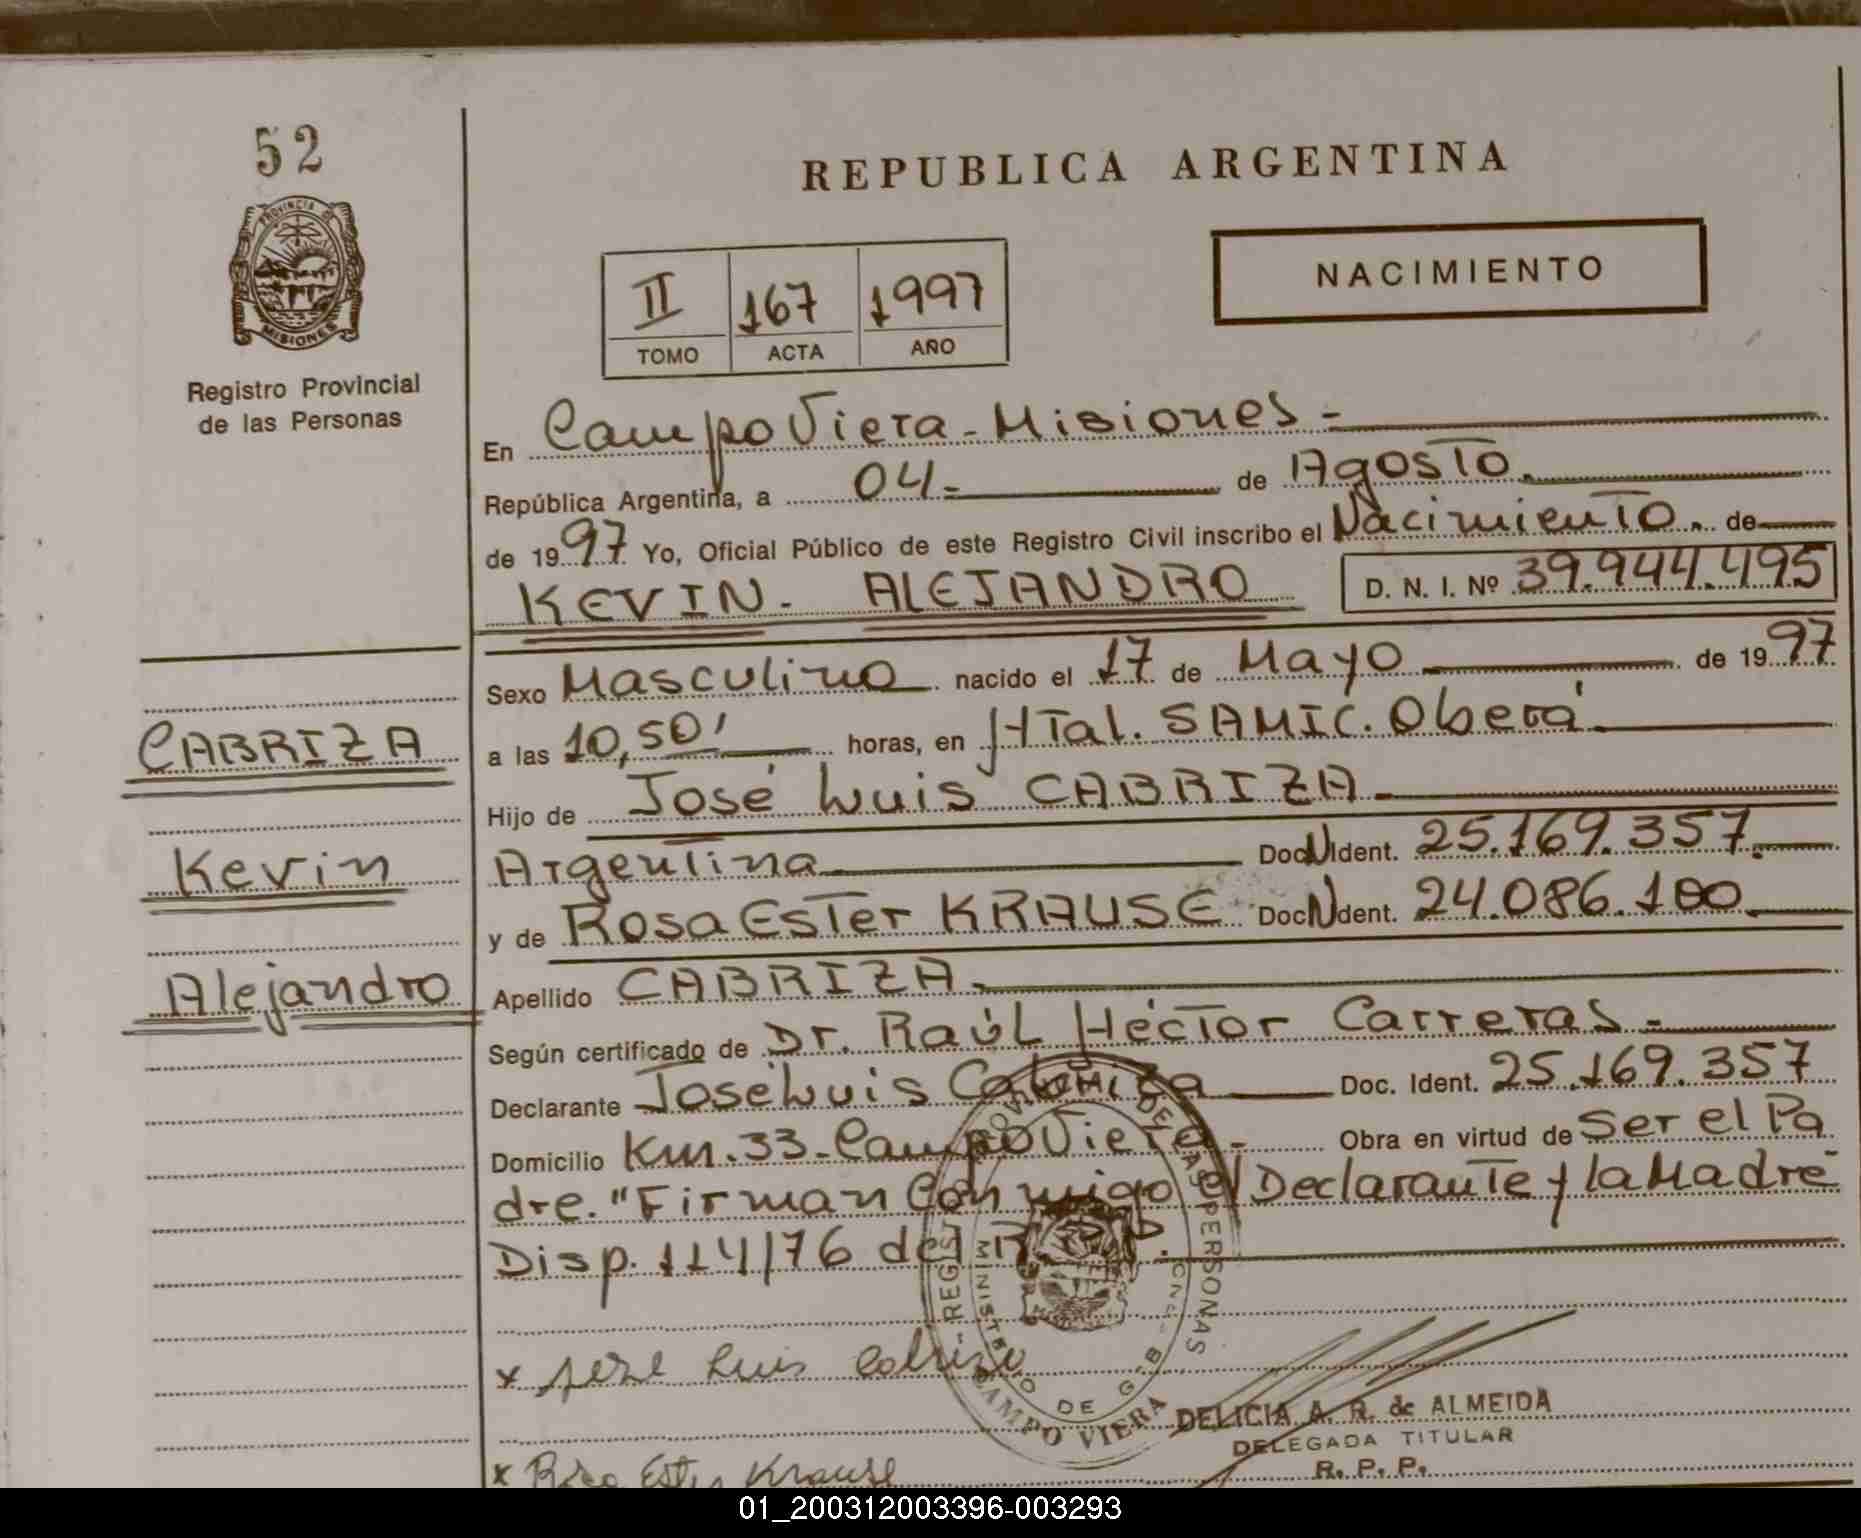 52
PROVINCIA DE
MISIONES
Registro Provincial
de las Personas
REPUBLICA ARGENTINA
NACIMIENTO
II 167 1997
TOMO ACTA AÑO
En Campo Viera - Misiones -
República Argentina, a 04.- de Agosto.
de 1997 Yo, Oficial Público de este Registro Civil inscribo el Nacimiento. de
KEVIN - ALEJANDRO D. N. I. Nº 39.944.495
Sexo Masculino nacido el 17 de Mayo de 1997
a las 10,50' horas, en HTal. SAMIC. Oberá.
Hijo de José Luis CABRIZA.
Argentina. Doc N Ident. 25.169.357.
y de Rosa Ester KRAUSE Doc N dent. 24.086.100.
Apellido CABRIZA.
Según certificado de Dr. Raúl Héctor Carreras.-
Declarante José Luis Cabriza Doc. Ident. 25.169.357
Domicilio Km.33-Campo Viera - Obra en virtud de Ser el Pa
dre. "Firman Con migo el Declarante y la Madre
Disp. 114/76 del R.P.P.
CABRIZA
Kevin
Alejandro
x José Luis Cabriza
REGISTRO DE LAS PERSONAS
MINISTERIO DE G
CAMPO VIERA
DELICIA A. R. de ALMEIDA
DELEGADA TITULAR
R. P. P.
x Rosa Ester Krause
01_200312003396-003293